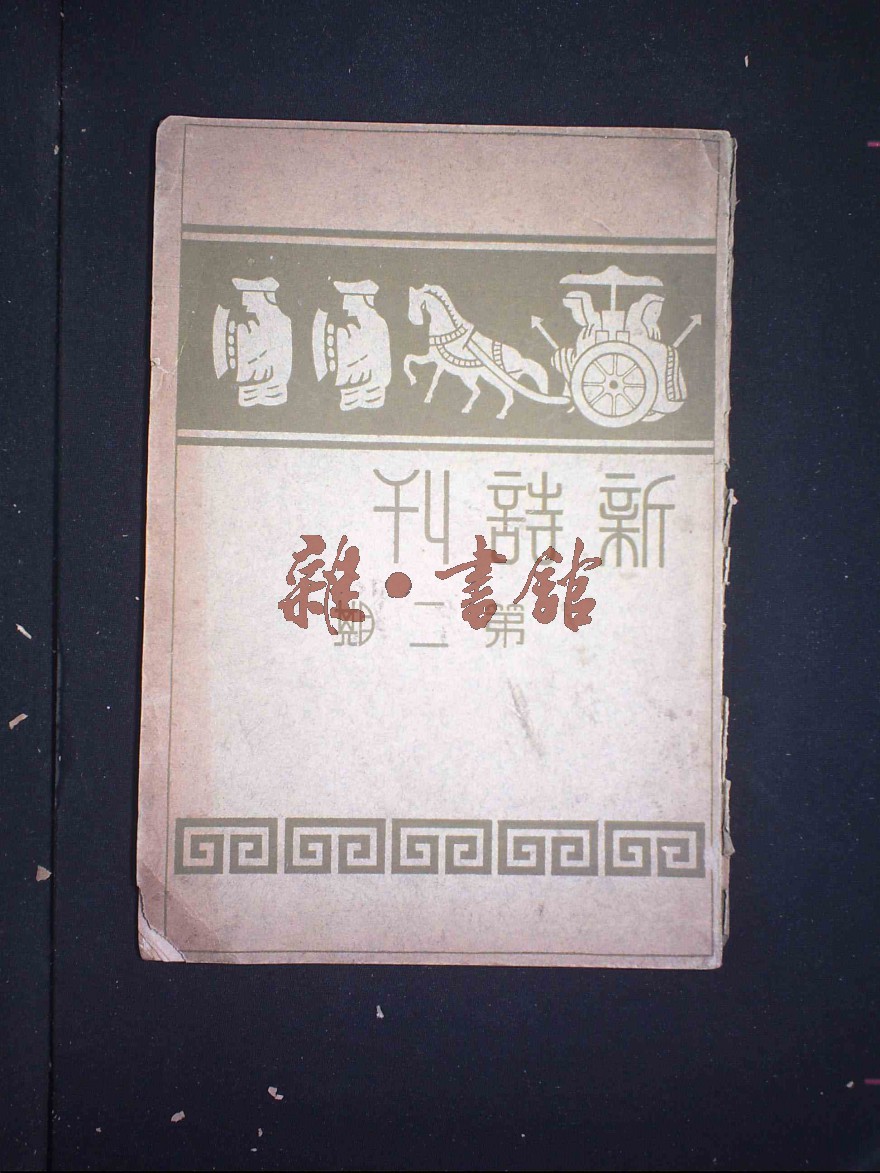 新詩刊
第二期
雜·書館